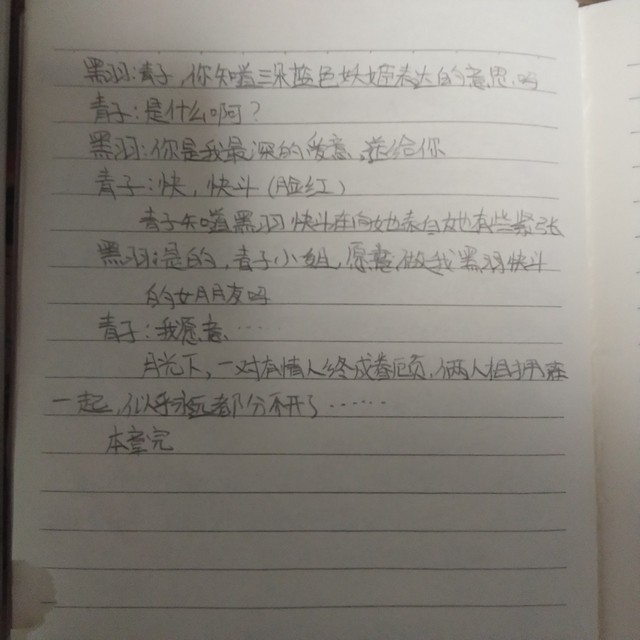 黑羽:青子,你知道三朵蓝色妖姬表达的意思吗
青子:是什么啊?
黑羽:你是我最深的爱意,送给你
青子:快,快斗(脸红)
青子知道黑羽快斗在向她表白她有些紧张
黑羽:是的,青子小姐,愿意做我黑羽快斗
的女朋友吗
青子:我愿意……
月光下,一对有情人终成眷属,俩人相拥在
一起,似乎永远都分不开了……
本章完